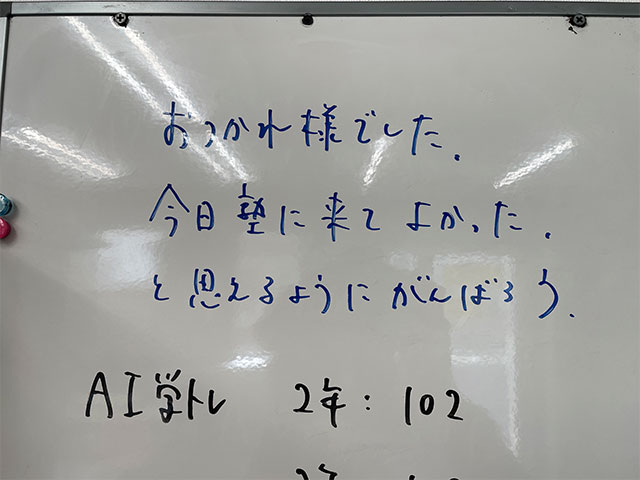 おつかれ様でした.
今日塾に来てよかった.
と思えるようにがんばろう.
AI学トレ 2年: 102